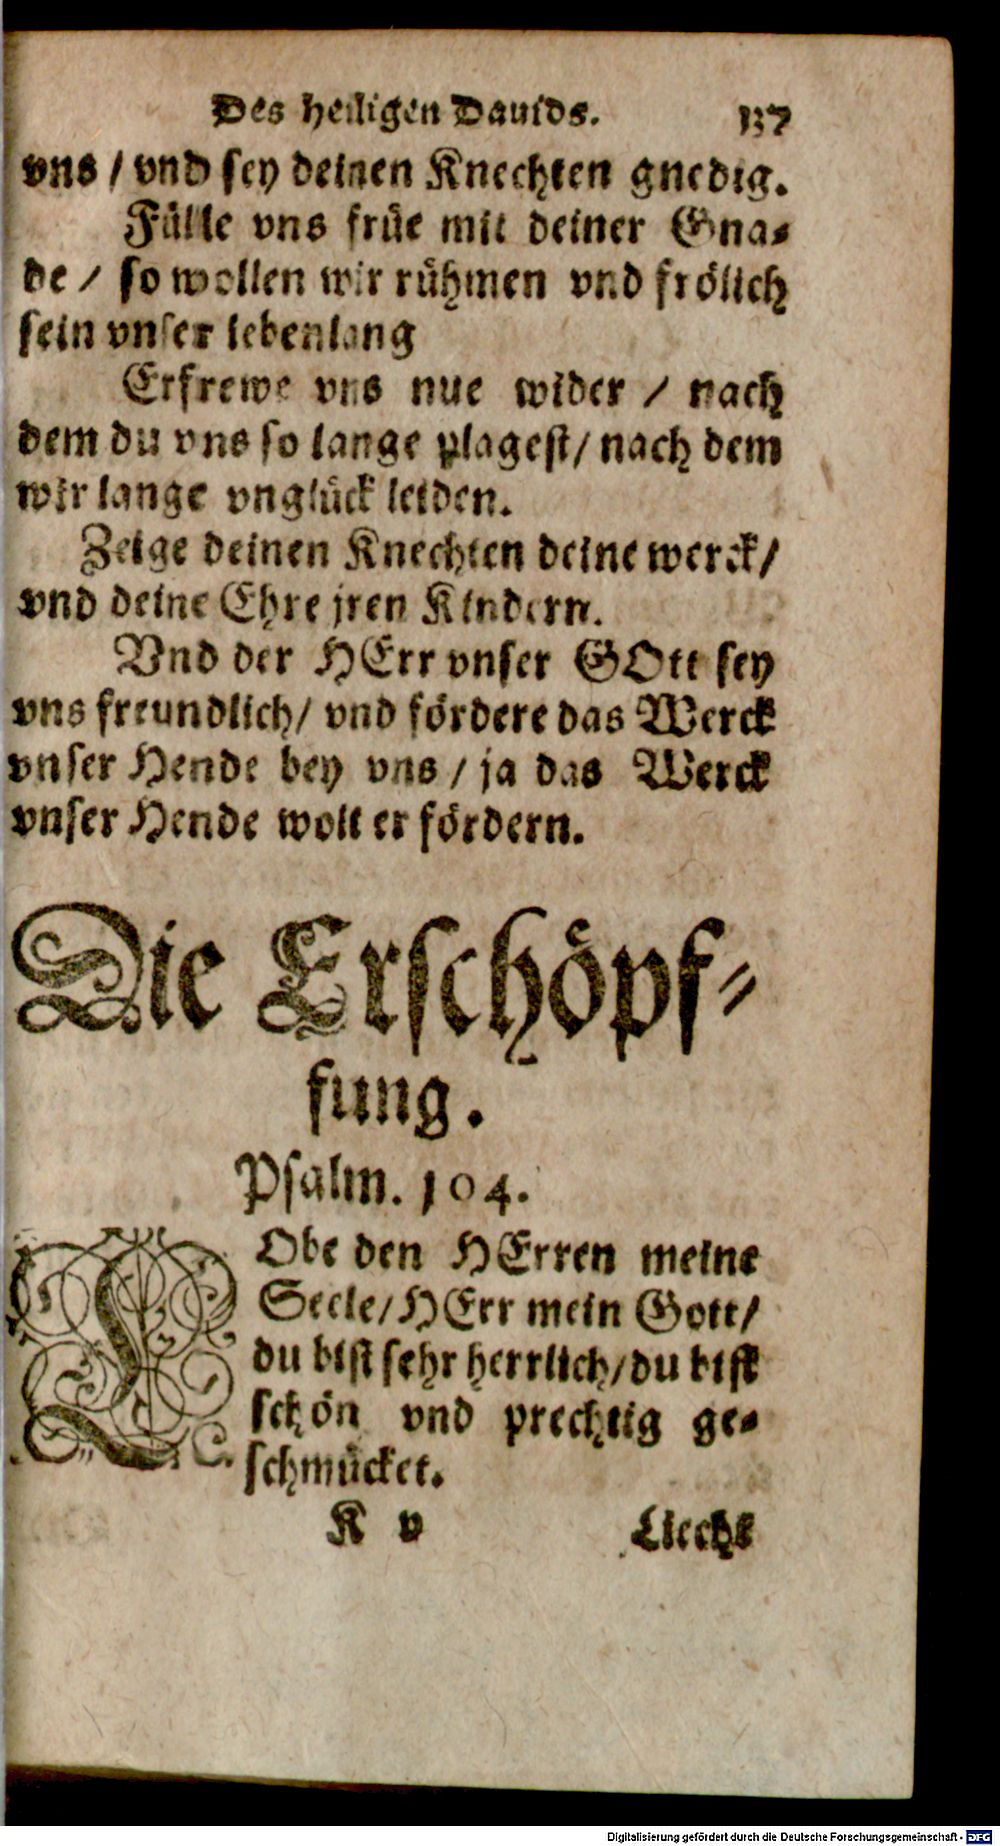 Des heiligen Dauids. 137
vns / vnd sey deinen Knechten gnedig.
Fülle vns früe mit deiner Gna-
de / so wollen wir rühmen vnd frölich
sein vnser lebenlang
Erfrewe vns nue wider / nach
dem du vns so lange plagest / nach dem
wir lange vnglück leiden.
Zeige deinen Knechten deine werck /
vnd deine Ehre jren Kindern.
Vnd der HErr vnser GOtt sey
vns freundlich / vnd fördere das Werck
vnser Hende bey vns / ja das Werck
vnser Hende wolt er fördern.
Die Erschöpf-
fung.
Psalm. 104.
LObe den HErren meine
Seele / HErr mein Gott /
du bist sehr herrlich / du bist
schön vnd prechtig ge-
schmücket.
K v Liecht
Digitalisierung gefördert durch die Deutsche Forschungsgemeinschaft - DFG